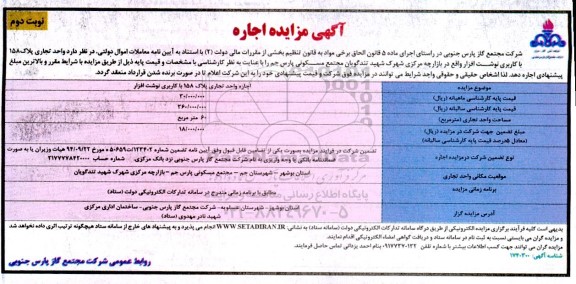 نوبت دوم
آگهی مزایده اجاره
شرکت مجتمع گاز پارس جنوبی در راستای اجرای ماده ۵ قانون الحاق برخی مواد به قانون تنظیم بخشی از مقررات مالی دولت (۲) با استناد به آیین نامه معاملات اموال دولتی، در نظر دارد واحد تجاری پلاک ۱۵۸
با کاربری نوشت افزار واقع در بازارچه مرکزی شهرک شهید تندگویان مجتمع مسکونی پارس جم را با عنایت به نظر کارشناسی با مشخصات و قیمت پایه ذیل از طریق مزایده با شرایط مقرر و بالاترین مبلغ
پیشنهادی اجاره دهد. لذا اشخاص حقیقی و حقوقی واجد شرایط می توانند در مزایده فوق شرکت و قیمت پیشنهادی خود را به این شرکت اعلام تا در صورت برنده شدن قرارداد منعقد گردد.
موضوع مزایده
اجاره واحد تجاری پلاک ۱۵۸ با کاربری نوشت افزار
قیمت پایه کارشناسی ماهیانه (ریال)
۳۰/۰۰۰/۰۰۰
قیمت پایه کارشناسی سالیانه (ریال)
۳۶۰/۰۰۰/۰۰۰
مساحت واحد تجاری (مترمربع)
۶۰ متر مربع
مبلغ تضمین جهت شرکت در مزایده (ریال)
(معادل ۵درصد قیمت پایه کارشناسی سالیانه)
۱۸/۰۰۰/۰۰۰
نوع تضمین شرکت درمزایده اجاره
تضمین شرکت در فرآیند مزایده بصورت یکی از تضامین قابل قبول وفق آیین نامه تضمین شماره ۱۲۳۴۰۲/ت۵۰۶۵۹ه مورخ ۹۴/۰۹/۲۲ هیات وزیران یا به صورت
ضمانتنامه بانکی یا وجه واریزی به نام شرکت مجتمع گاز پارس جنوبی نزد بانک مرکزی، شماره حساب
موقعیت مکانی واحد تجاری
استان بوشهر – شهرستان جم – مجتمع مسکونی پارس جم – بازارچه مرکزی شهرک شهید تندگویان
برنامه زمانی مزایده
مطابق با برنامه زمانی مندرج در سامانه تدارکات الکترونیکی دولت (ستاد)
آدرس مزایده گزار
استان بوشهر- شهرستان عسلویه- شرکت مجتمع گاز پارس جنوبی - ساختمان اداری مرکزی
شهید نادر مهدوی (ستاد)
بدیهی است کلیه فرآیند برگزاری مزایده الکترونیکی از طریق درگاه سامانه تدارکات الکترونیکی دولت (سامانه ستاد) به نشانی: WWW.SETADIRAN.IR انجام می پذیرد و به پیشنهاد های خارج از سامانه ستاد هیچگونه ترتیب اثری داده نخواهد شد
و مزایده گران می بایستی نسبت به ثبت نام در سامانه ستاد و دریافت گواهی امضاء الکترونیکی اقدام نمایند.
و مزایده گران می توانند جهت کسب اطلاعات بیشتر با شماره تلفن ۰۹۱۷۳۷۰۱۲۲ بنام احمد یزدانی تماس حاصل فرمایند.
شناسه آگهی: ۱۷۴۰۳۰۰
روابط عمومی شرکت مجتمع گاز پارس جنوبی